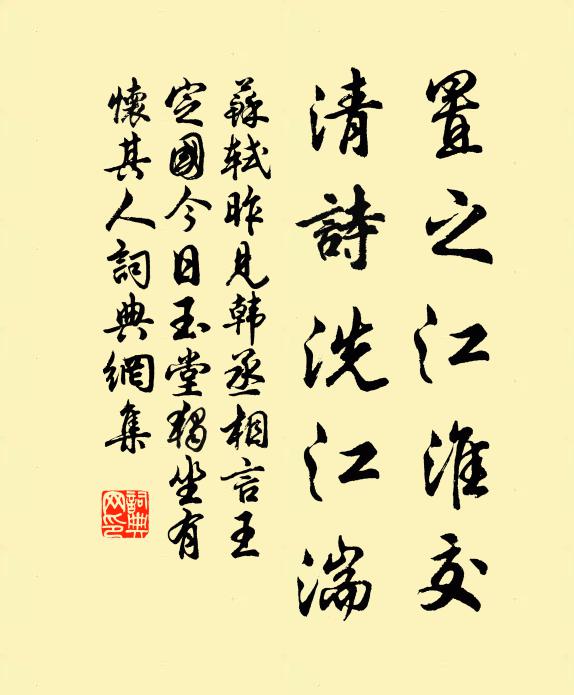 置之江淮交
清詩洗江湍
蘇軾昨見韩丞相言王
定國今日玉堂獨坐有
懷其人詞典網集
詞典
网印